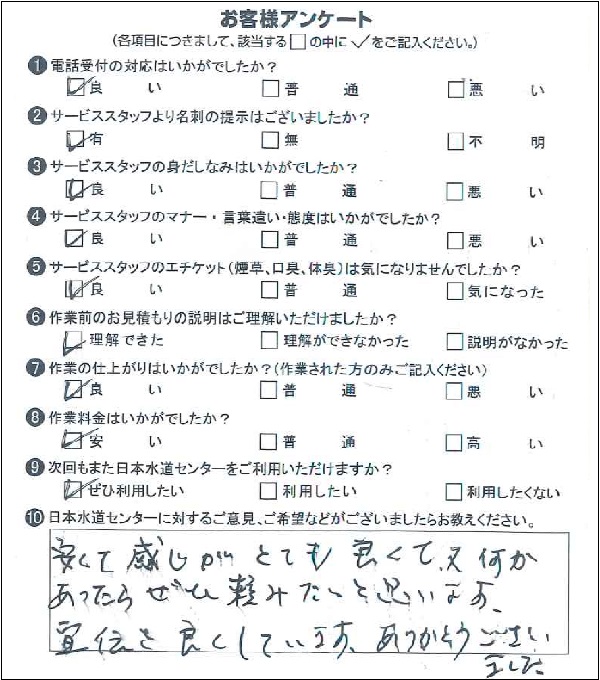 お客様アンケート
(各項目につきまして、該当する□の中に✓をご記入ください。)
❶電話受付の対応はいかがでしたか?
☑良い □普通 □悪い
❷サービススタッフより名刺の提示はございましたか?
☑有 □無 □不明
❸サービススタッフの身だしなみはいかがでしたか?
☑良い □普通 □悪い
❹サービススタッフのマナー・言葉遣い・態度はいかがでしたか?
☑良い □普通 □悪い
❺サービススタッフのエチケット(煙草、口臭、体臭)は気になりませんでしたか?
☑良い □普通 □気になった
❻作業前のお見積もりの説明はご理解いただけましたか?
☑理解できた □理解ができなかった □説明がなかった
❼作業の仕上がりはいかがでしたか?(作業された方のみご記入ください)
☑良い □普通 □悪い
❽作業料金はいかがでしたか?
☑安い □普通 □高い
❾次回もまた日本水道センターをご利用いただけますか?
☑ぜひ利用したい □利用したい □利用したくない
❿日本水道センターに対するご意見、ご希望などがございましたらお教えください。
安くて感じがとても良くて、又何か
あったらぜひ頼みたいと思います。
宣伝を良くしています、ありがとうござい
ました